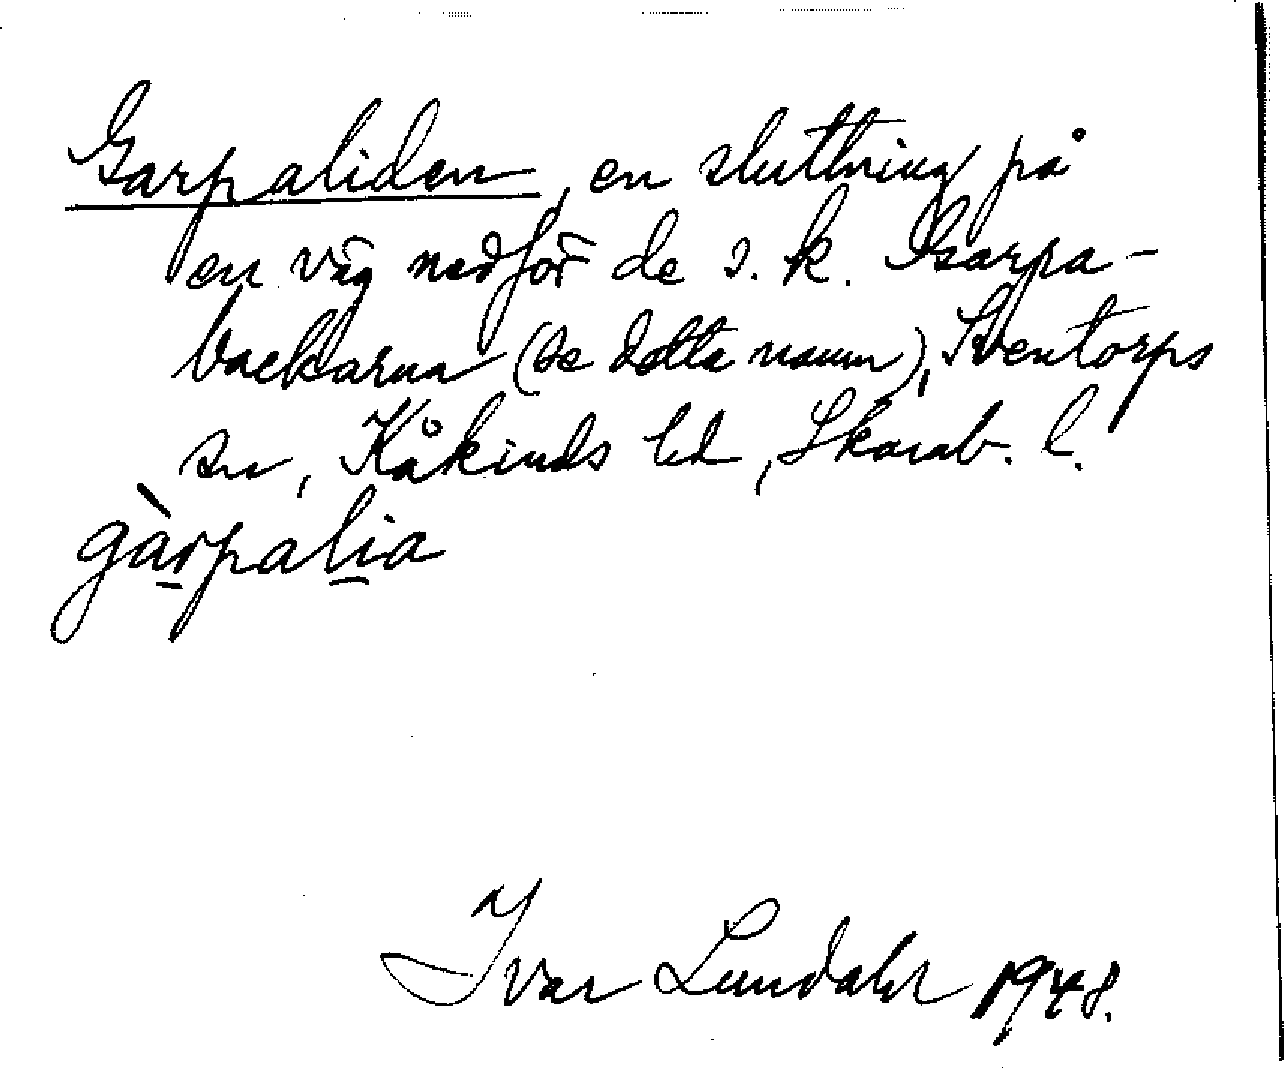 Garpaliden, en sluttning på
en väg nedför de s. k. Garpa-
backarna (se detta namn), Sventorps
sn, Kåkinds hd, Skarab. l.
gàrpalia
Ivar Lundahl 1948.